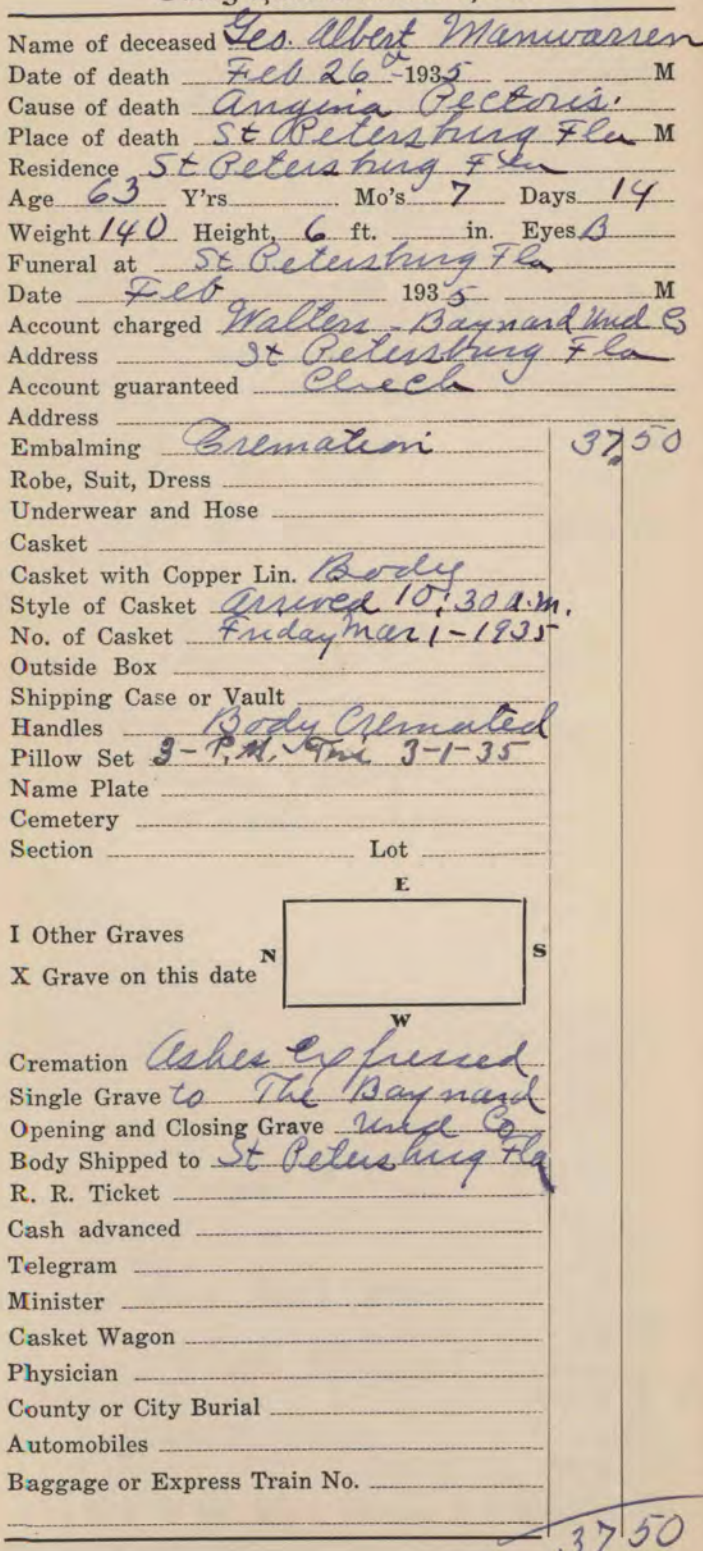 Name of deceased Geo. Albert Manwarren
Date of death Feb 26 - 1935 M
Cause of death Angina Pectoris.
Place of death St Petersburg Fla M
Residence St Petersburg Fla
Age 63 Y'rs Mo's 7 Days 14
Weight 140 Height, 6 ft. in. Eyes B
Funeral at St Petersburg Fla
Date Feb 1935 M
Account charged Walters - Baynard Und Co
Address St Petersburg Fla
Account guaranteed Check
Address
Embalming Cremation 37.50
Robe, Suit, Dress
Underwear and Hose
Casket
Casket with Copper Lin. Body
Style of Casket arrived 10:30 a.m.
No. of Casket Friday Mar 1 - 1935
Outside Box
Shipping Case or Vault
Handles Body Cremated
Pillow Set 3 - P.M. Fri 3-1-35
Name Plate
Cemetery
Section Lot
E
I Other Graves
N S
X Grave on this date
W
Cremation Ashes expressed
Single Grave to The Baynard
Opening and Closing Grave Und Co
Body Shipped to St Petersburg Fla
R. R. Ticket
Cash advanced
Telegram
Minister
Casket Wagon
Physician
County or City Burial
Automobiles
Baggage or Express Train No.
37 50